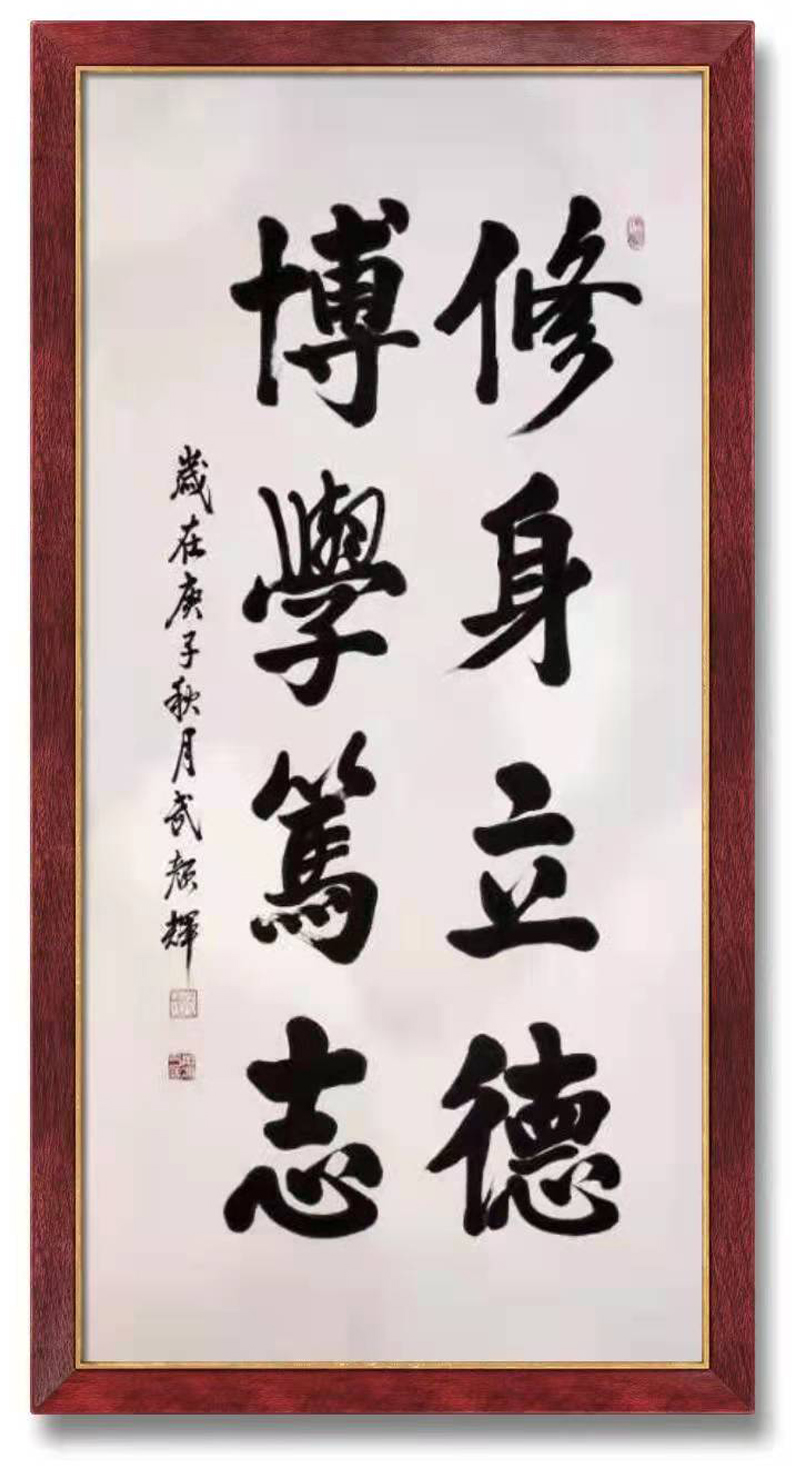 修身立德
博學篤志
歲在庚子秋月武顏輝